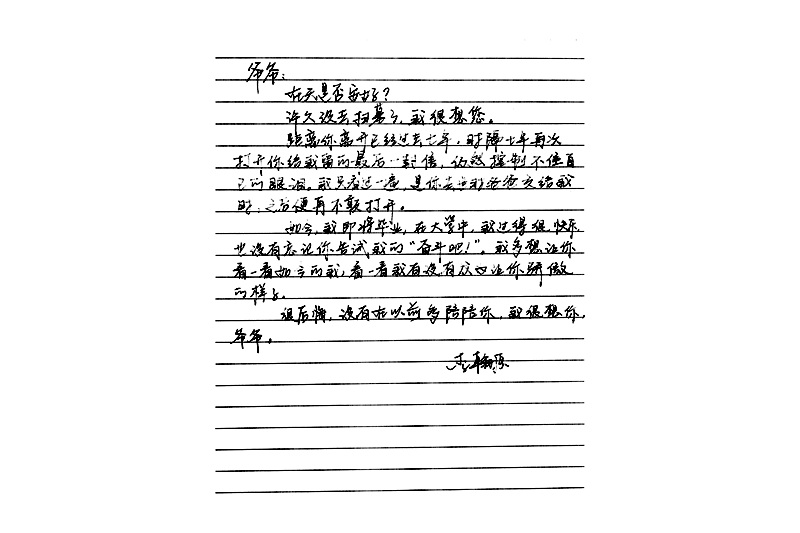 爷爷：
在天是否安好？
许久没去扫墓了，我很想您。
距离你离开已经过去七年，时隔七年再次
打开你给我留的最后一封信，仍然控制不住自
己的眼泪。我只看过一遍，是你去世那爸爸交给我
时，之后便再不敢打开。
如今，我即将毕业，在大学中，我过得很快乐
也没有忘记你告诫我的“奋斗吧！”。我多想让你
看一看如今的我，看一看我有没有成为让你骄傲
的样子。
很后悔，没有在以前多陪陪你，我很想你，
爷爷。
李翰源